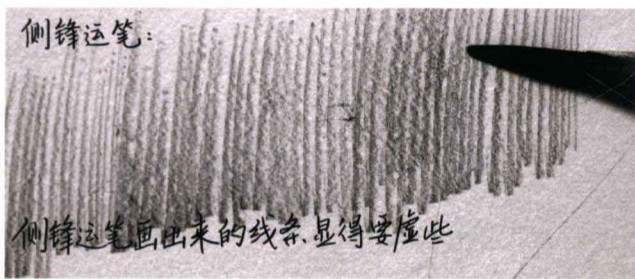 侧锋运笔：
侧锋运笔画出来的线条显得要虚些